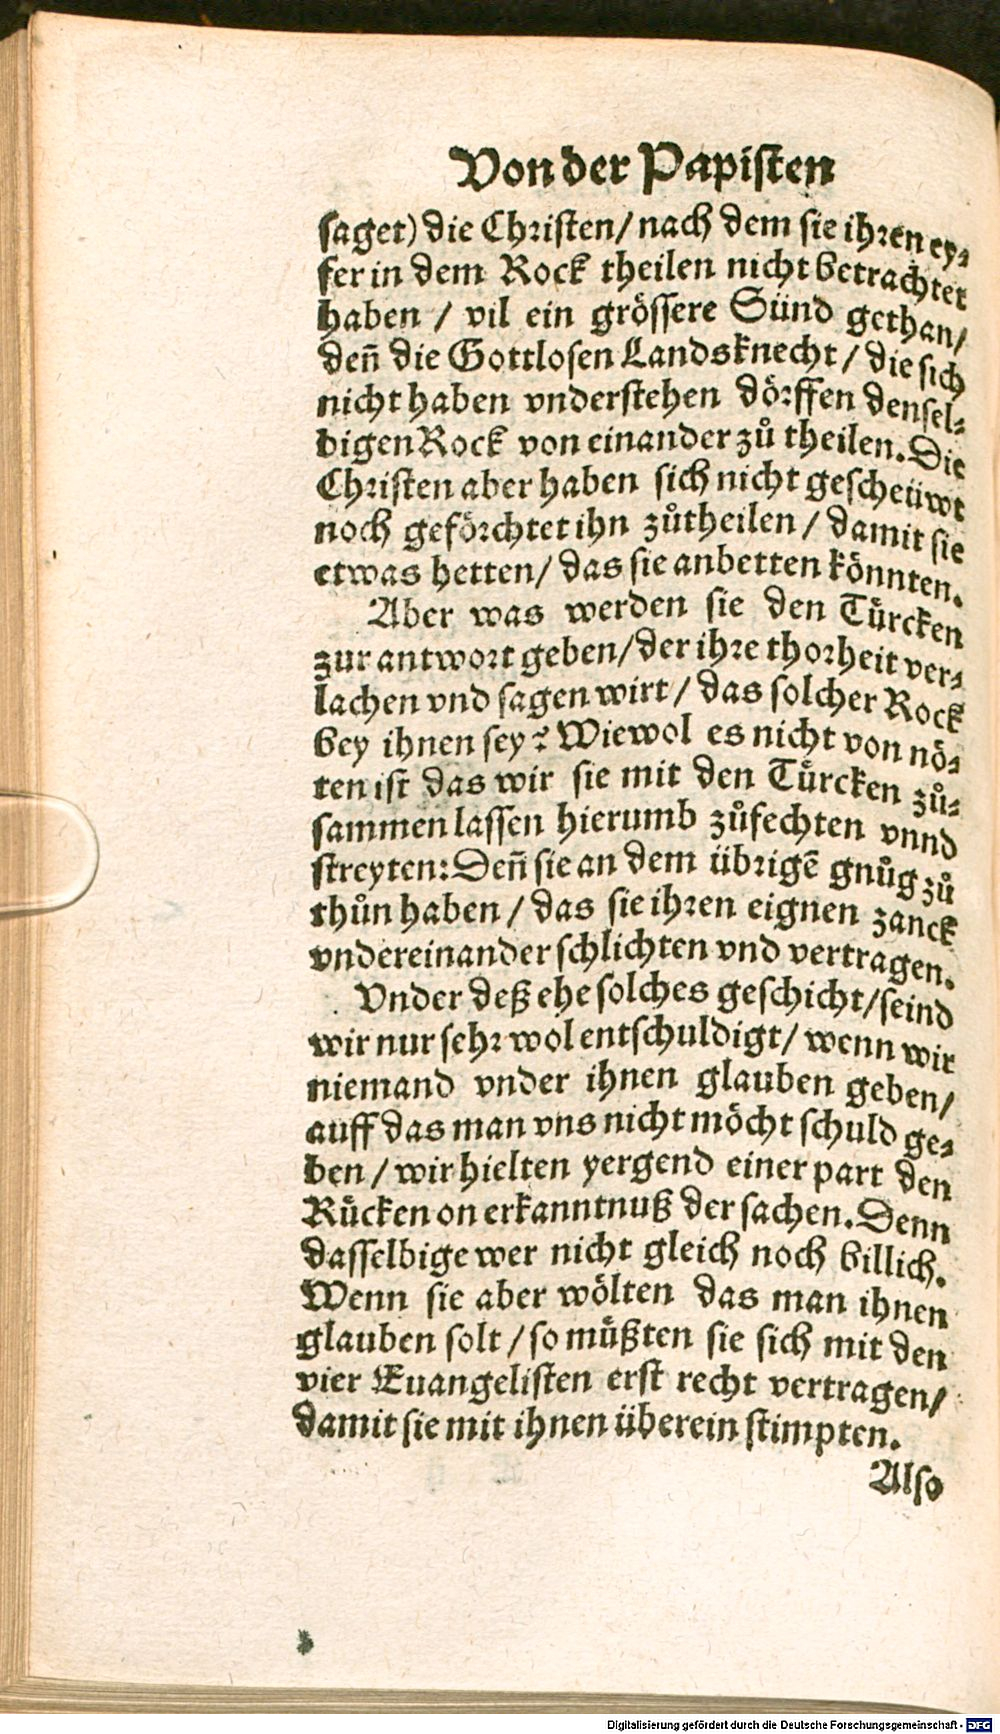 Von der Papisten
saget) die Christen / nach dem sie ihren ey⸗
fer in dem Rock theilen nicht betrachtet
haben / vil ein grössere Sünd gethan /
deñ die Gottlosen Landsknecht / die sich
nicht haben vnderstehen dörffen densel⸗
bigen Rock von einander zů theilen. Die
Christen aber haben sich nicht gescheüwt
noch geförchtet ihn zůtheilen / damit sie
etwas hetten / das sie anbetten könnten.
Aber was werden sie den Türcken
zur antwort geben / der ihre thorheit ver⸗
lachen vnd sagen wirt / das solcher Rock
bey ihnen sey? Wiewol es nicht von nö⸗
ten ist das wir sie mit den Türcken zů⸗
sammen lassen hierumb zůfechten vnnd
streyten: Deñ sie an dem übrigē gnůg zů
thůn haben / das sie ihren eignen zanck
vndereinander schlichten vnd vertragen.
Vnder deß ehe solches geschicht / seind
wir nur sehr wol entschuldigt / wenn wir
niemand vnder ihnen glauben geben /
auff das man vns nicht möcht schuld ge⸗
ben / wir hielten yergend einer part den
Rücken on erkanntnuß der sachen. Denn
dasselbige wer nicht gleich noch billich.
Wenn sie aber wölten das man ihnen
glauben solt / so müßten sie sich mit den
vier Euangelisten erst recht vertragen /
damit sie mit ihnen überein stimpten.
Also
Digitalisierung gefördert durch die Deutsche Forschungsgemeinschaft - DFG